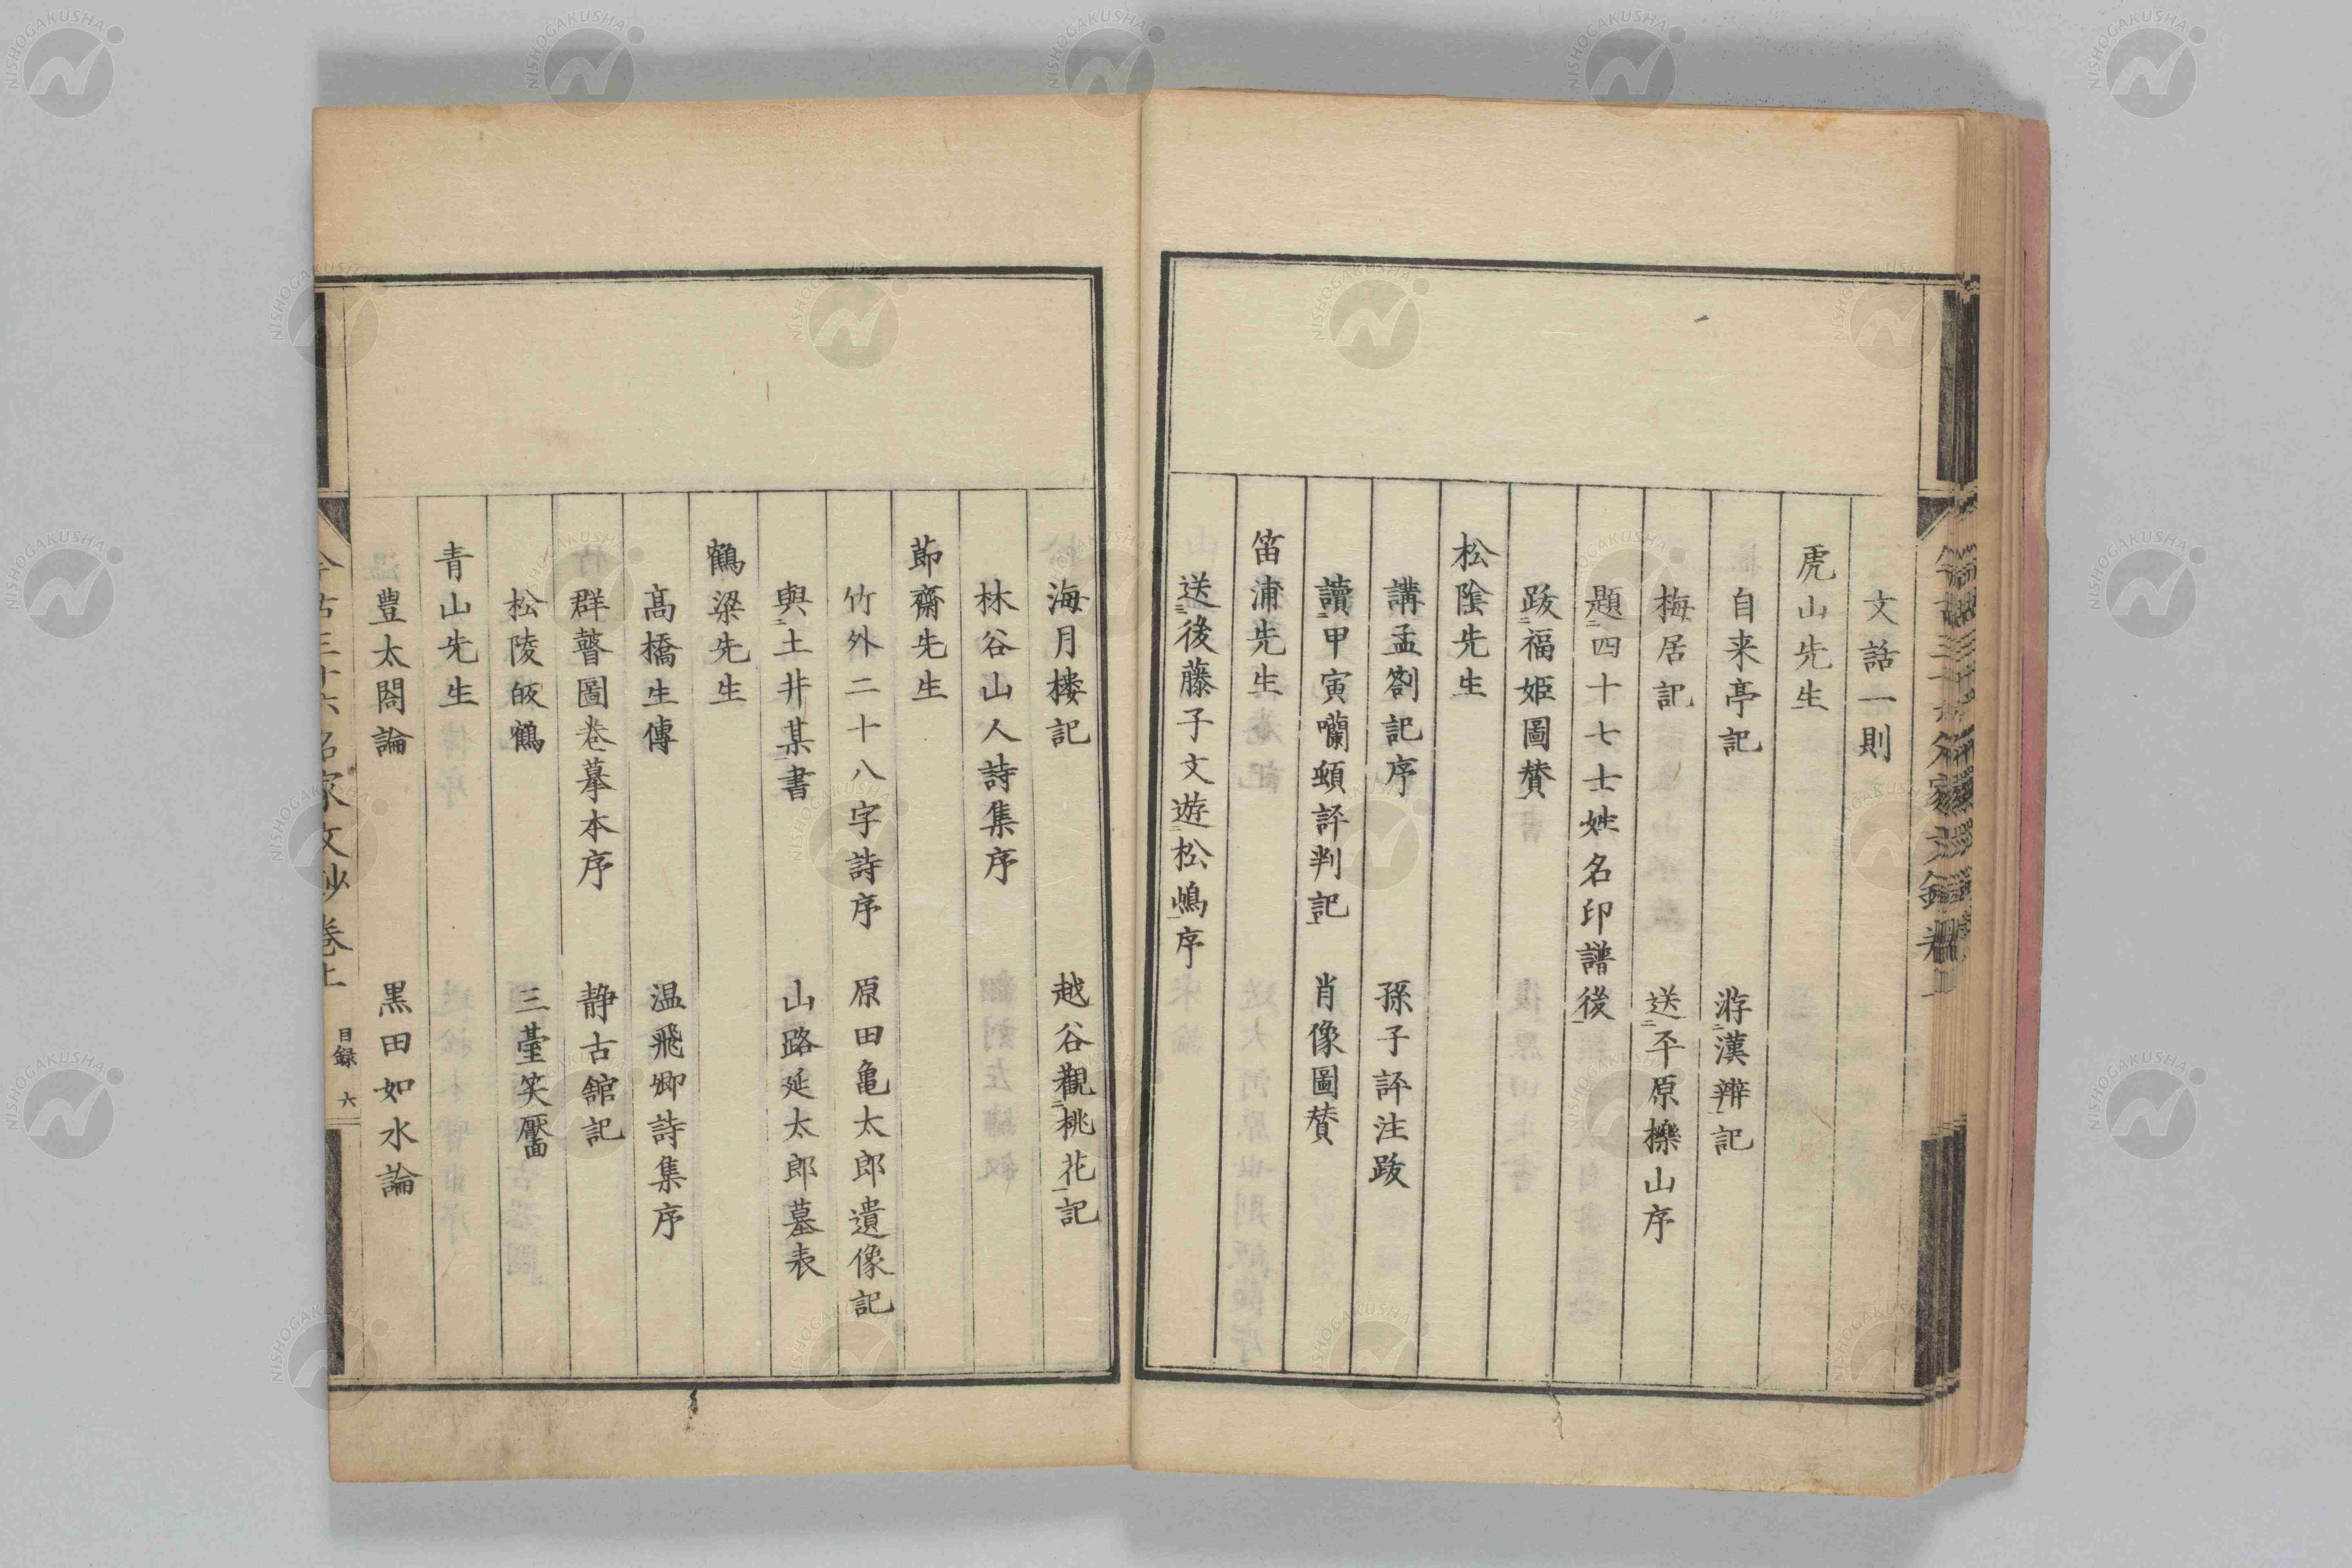 文話一則
虎山先生
自来亭記　游漢辨記
梅居記　送平原櫟山序
題四十七士姓名印譜後
跋福姫圖賛
松陰先生
講孟劄記序　孫子評注跋
讀甲寅囒頥評判記　肖像圖賛
笛浦先生
送後藤子文遊松嶋序
海月樓記　越谷觀桃花記
林谷山人詩集序
節齋先生
竹外二十八字詩序　原田亀太郎遺像記
與土井某書　山路延太郎墓表
鶴梁先生
高橋生傳　温飛卿詩集序
群瞽圖巻摹本序　静古舘記
松陵皈鶴　三臺笑靨
青山先生
豊太閤論　黒田如水論
今古三十六名家文鈔巻上　目録　六
NISHOGAKUSHA